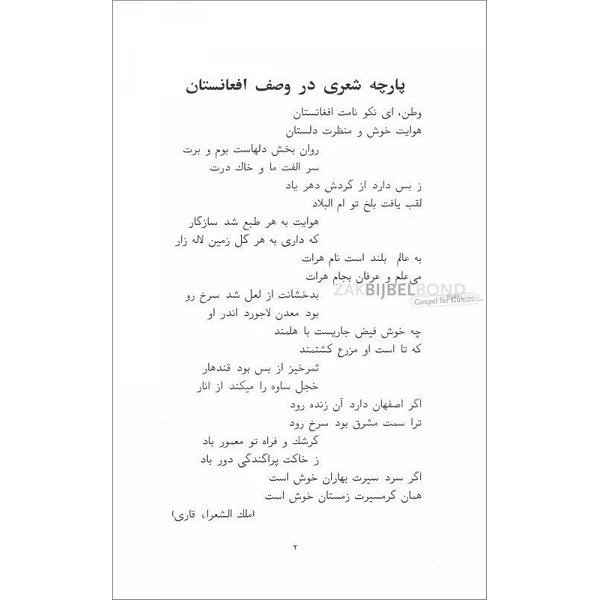 پارچه شعری در وصف افغانستان
وطن، ای نکو نامت افغانستان
هوایت خوش و منظرت دلستان
روان بخش دلهاست بوم و برت
سر الفت ما و خاك درت
ز بس دارد از گردش دهر یاد
لقب یافت بلخ تو ام البلاد
هوایت به هر طبع شد سازگار
که داری به هر گل زمین لاله زار
به عالم بلند است نام هرات
می‌علم و عرفان بجام هرات
ZAKBIJBELBOND
Gospel for Guests
بدخشانت از لعل شد سرخ رو
بود معدن لاجورد اندر او
چه خوش فیض جاریست با هلمند
که تا است او مزرع کشتمند
ثمرخیز از بس بود قندهار
خجل ساوه را میکند از انار
اگر اصفهان دارد آن زنده رود
ترا سمت مشرق بود سرخ رود
گرشك و فراه تو معمور باد
ز خاکت پراگندگی دور باد
اگر سرد سیرت بهاران خوش است
همان گرمسیرت زمستان خوش است
(ملك الشعراء قاری)
۲